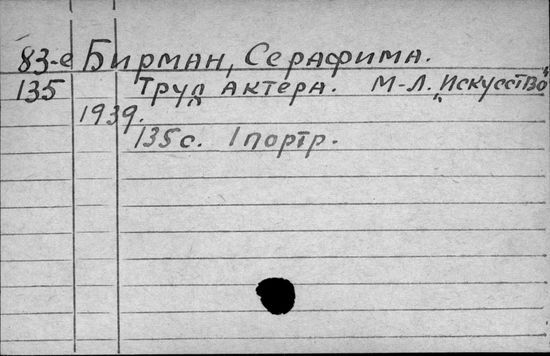 83-е Бирман, Серафима.
135 Труд актера. М-Л. „Искусство"
1939.
135с. 1 портр.